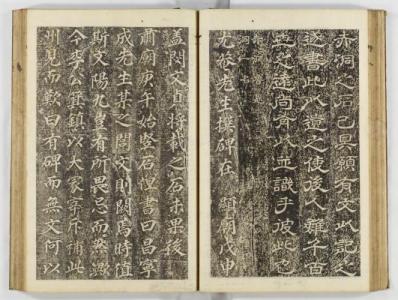 赤洞之石已具願有文以記之
遂書此以遺之使後人雖千百
世之遠尚有以並識乎彼此也
尤菴先生撰碑在 肅廟戊申
蓋閔文貞將載之石未果後
肅廟庚午始竪石徑書曰昌寧
成先生某之閭文則闕焉時値
斯文陽九皇有所畏忌而然歟
今李公箕鎭以大冢宰斥補此
州見而歎曰有碑而無文何以